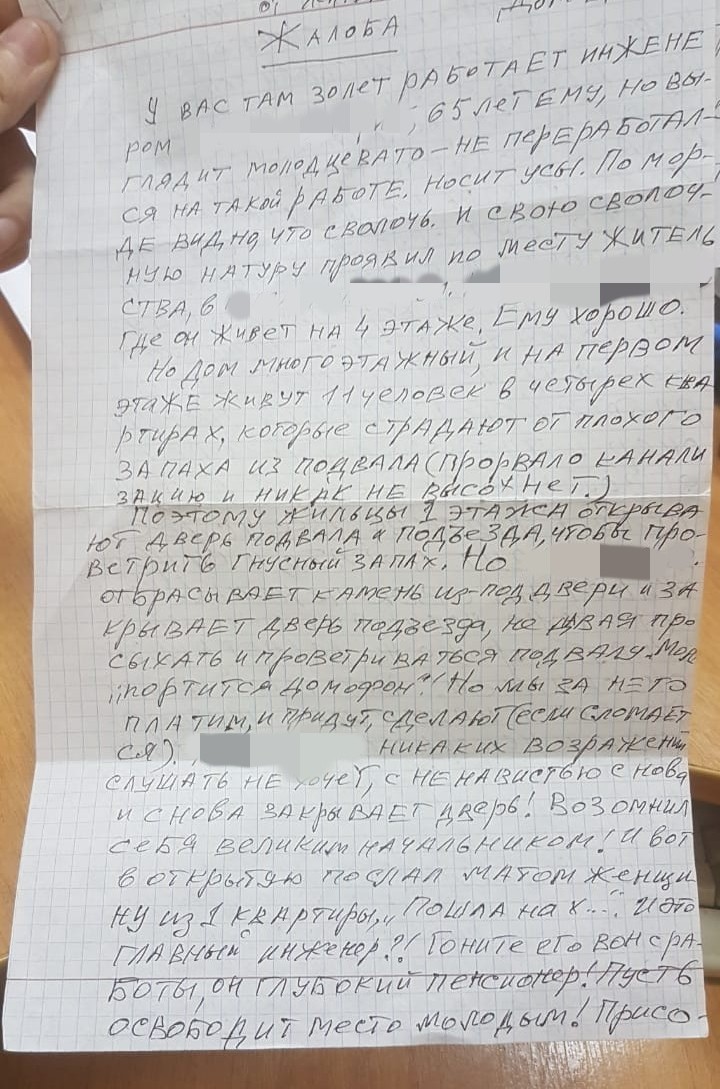 ЖАЛОБА
У ВАС ТАМ 30 ЛЕТ РАБОТАЕТ ИНЖЕНЕ
РОМ , 65 ЛЕТ ЕМУ, НО ВЫ-
ГЛЯДИТ МОЛОДЦЕВАТО – НЕ ПЕРЕРАБОТАЛ-
СЯ НА ТАКОЙ РАБОТЕ. НОСИТ УСЫ. ПО МОР-
ДЕ ВИДНО, ЧТО СВОЛОЧЬ. И СВОЮ СВОЛОЧ-
НУЮ НАТУРУ ПРОЯВИЛ ПО МЕСТУ ЖИТЕЛЬ
СТВА, В
ГДЕ ОН ЖИВЕТ НА 4 ЭТАЖЕ. ЕМУ ХОРОШО.
НО ДОМ МНОГОЭТАЖНЫЙ, И НА ПЕРВОМ
ЭТАЖЕ ЖИВУТ 11 ЧЕЛОВЕК В ЧЕТЫРЕХ КВА
РТИРАХ, КОТОРЫЕ СТРАДАЮТ ОТ ПЛОХОГО
ЗАПАХА ИЗ ПОДВАЛА (ПРОРВАЛО КАНАЛИ
ЗАЦИЮ И НИКАК НЕ ВЫСОХНЕТ.)
ПОЭТОМУ ЖИЛЬЦЫ 1 ЭТАЖА ОТКРЫВА
ЮТ ДВЕРЬ ПОДВАЛА И ПОДЪЕЗДА, ЧТОБЫ ПРО-
ВЕТРИТЬ ГНУСНЫЙ ЗАПАХ. НО
ОТБРАСЫВАЕТ КАМЕНЬ ИЗ-ПОД ДВЕРИ И ЗА
КРЫВАЕТ ДВЕРЬ ПОДЪЕЗДА, НЕ ДАВАЯ ПРО
СЫХАТЬ И ПРОВЕТРИВАТЬСЯ ПОДВАЛУ. МОЛ
„ПОРТИТСЯ ДОМОФОН"! НО МЫ ЗА НЕГО
ПЛАТИМ, И ПРИДУТ, СДЕЛАЮТ (ЕСЛИ СЛОМАЕТ
СЯ). НИКАКИХ ВОЗРАЖЕНИЙ
СЛУШАТЬ НЕ ХОЧЕТ, С НЕНАВИСТЬЮ СНОВА
И СНОВА ЗАКРЫВАЕТ ДВЕРЬ! ВОЗОМНИЛ
СЕБЯ ВЕЛИКИМ НАЧАЛЬНИКОМ! И ВОТ
В ОТКРЫТУЮ ПОСЛАЛ МАТОМ ЖЕНЩИ
НУ ИЗ 1 КВАРТИРЫ, „ПОШЛА НА Х...". И ЭТО
ГЛАВНЫЙ ИНЖЕНЕР?! ГОНИТЕ ЕГО ВОН С РА-
БОТЫ, ОН ГЛУБОКИЙ ПЕНСИОНЕР! ПУСТЬ
ОСВОБОДИТ МЕСТО МОЛОДЫМ! ПРИСО-